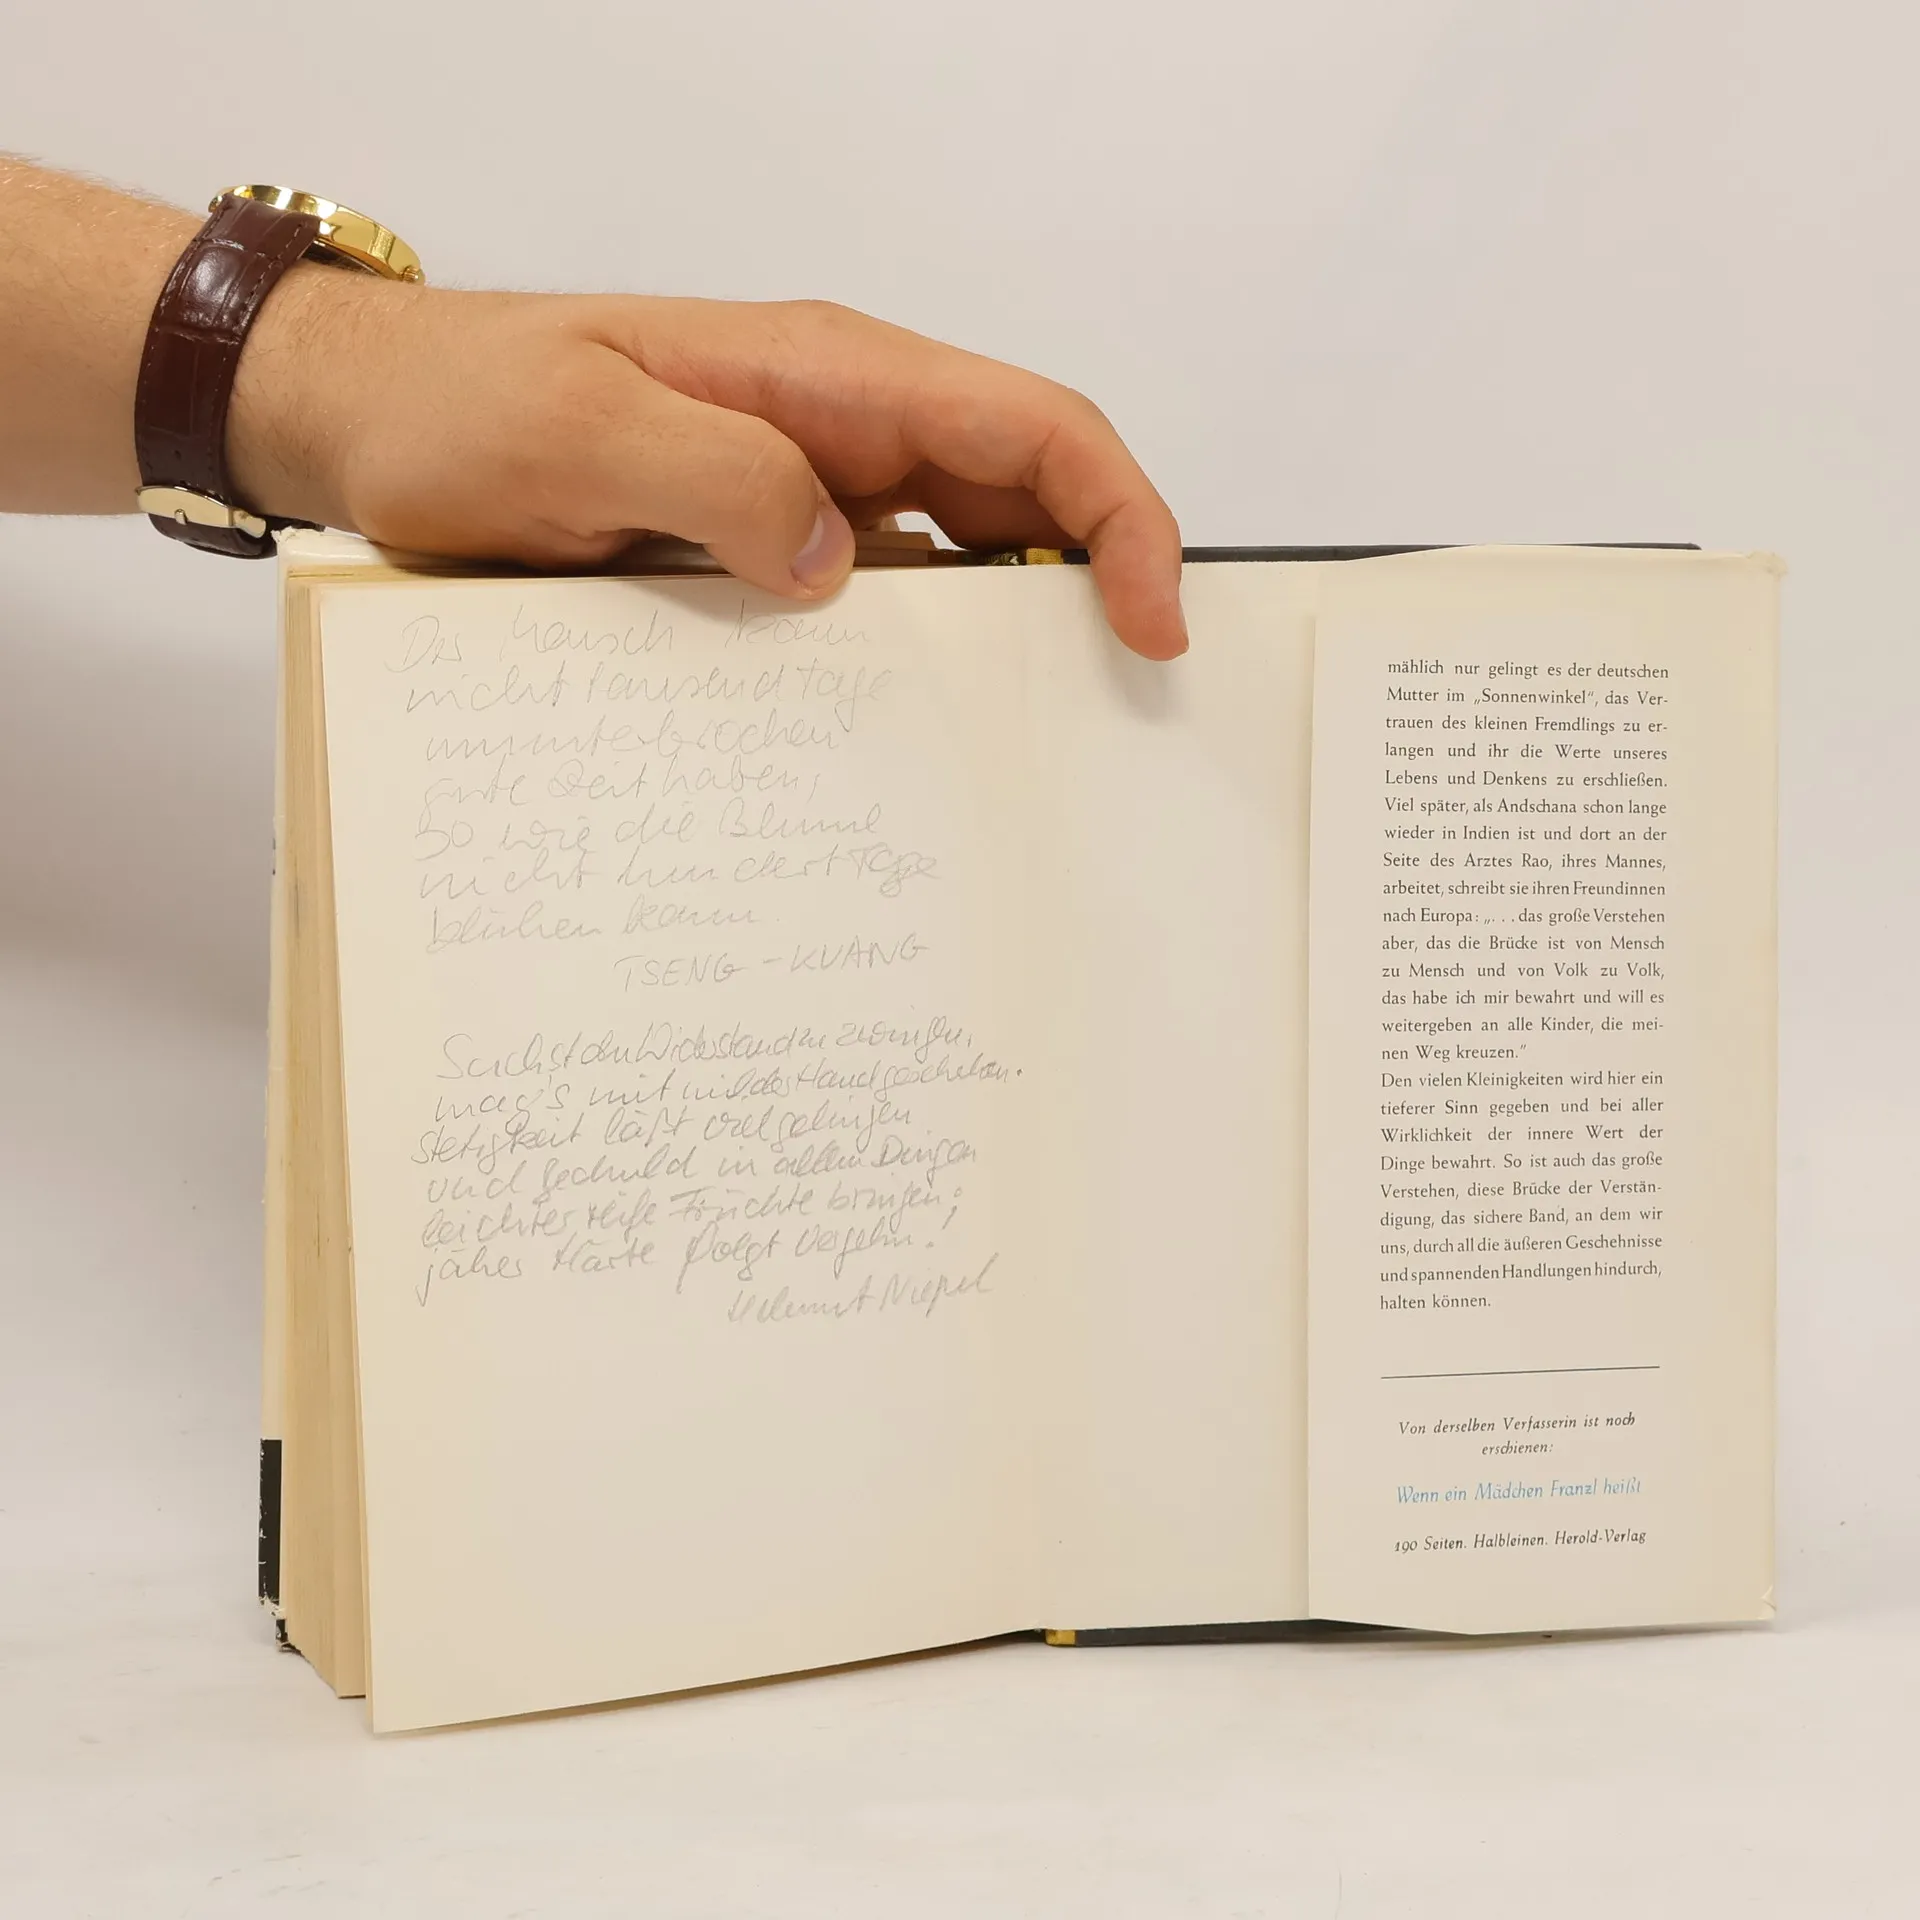 Der Mensch kann
nicht tausend Tage
ununterbrochen
gute Zeit haben,
so wie die Blume
nicht hundert Tage
blühen kann.
TSENG-KUANG
Suchst du Widerstand zu zwingen,
mag's mit milder Hand geschehen.
Stetigkeit läßt viel gelingen
und Geduld in allen Dingen
leichter reife Früchte bringen;
jäher Härte folgt Vergehn!
Helmut
mählich nur gelingt es der deutschen
Mutter im „Sonnenwinkel“, das Ver-
trauen des kleinen Fremdlings zu er-
langen und ihr die Werte unseres
Lebens und Denkens zu erschließen.
Viel später, als Andschana schon lange
wieder in Indien ist und dort an der
Seite des Arztes Rao, ihres Mannes,
arbeitet, schreibt sie ihren Freundinnen
nach Europa: „. . . das große Verstehen
aber, das die Brücke ist von Mensch
zu Mensch und von Volk zu Volk,
das habe ich mir bewahrt und will es
weitergeben an alle Kinder, die mei-
nen Weg kreuzen.“
Den vielen Kleinigkeiten wird hier ein
tieferer Sinn gegeben und bei aller
Wirklichkeit der innere Wert der
Dinge bewahrt. So ist auch das große
Verstehen, diese Brücke der Verstän-
digung, das sichere Band, an dem wir
uns, durch all die äußeren Geschehnisse
und spannenden Handlungen hindurch,
halten können.
Von derselben Verfasserin ist noch
erschienen:
Wenn ein Mädchen Franzl heißt
190 Seiten. Halbleinen. Herold-Verlag